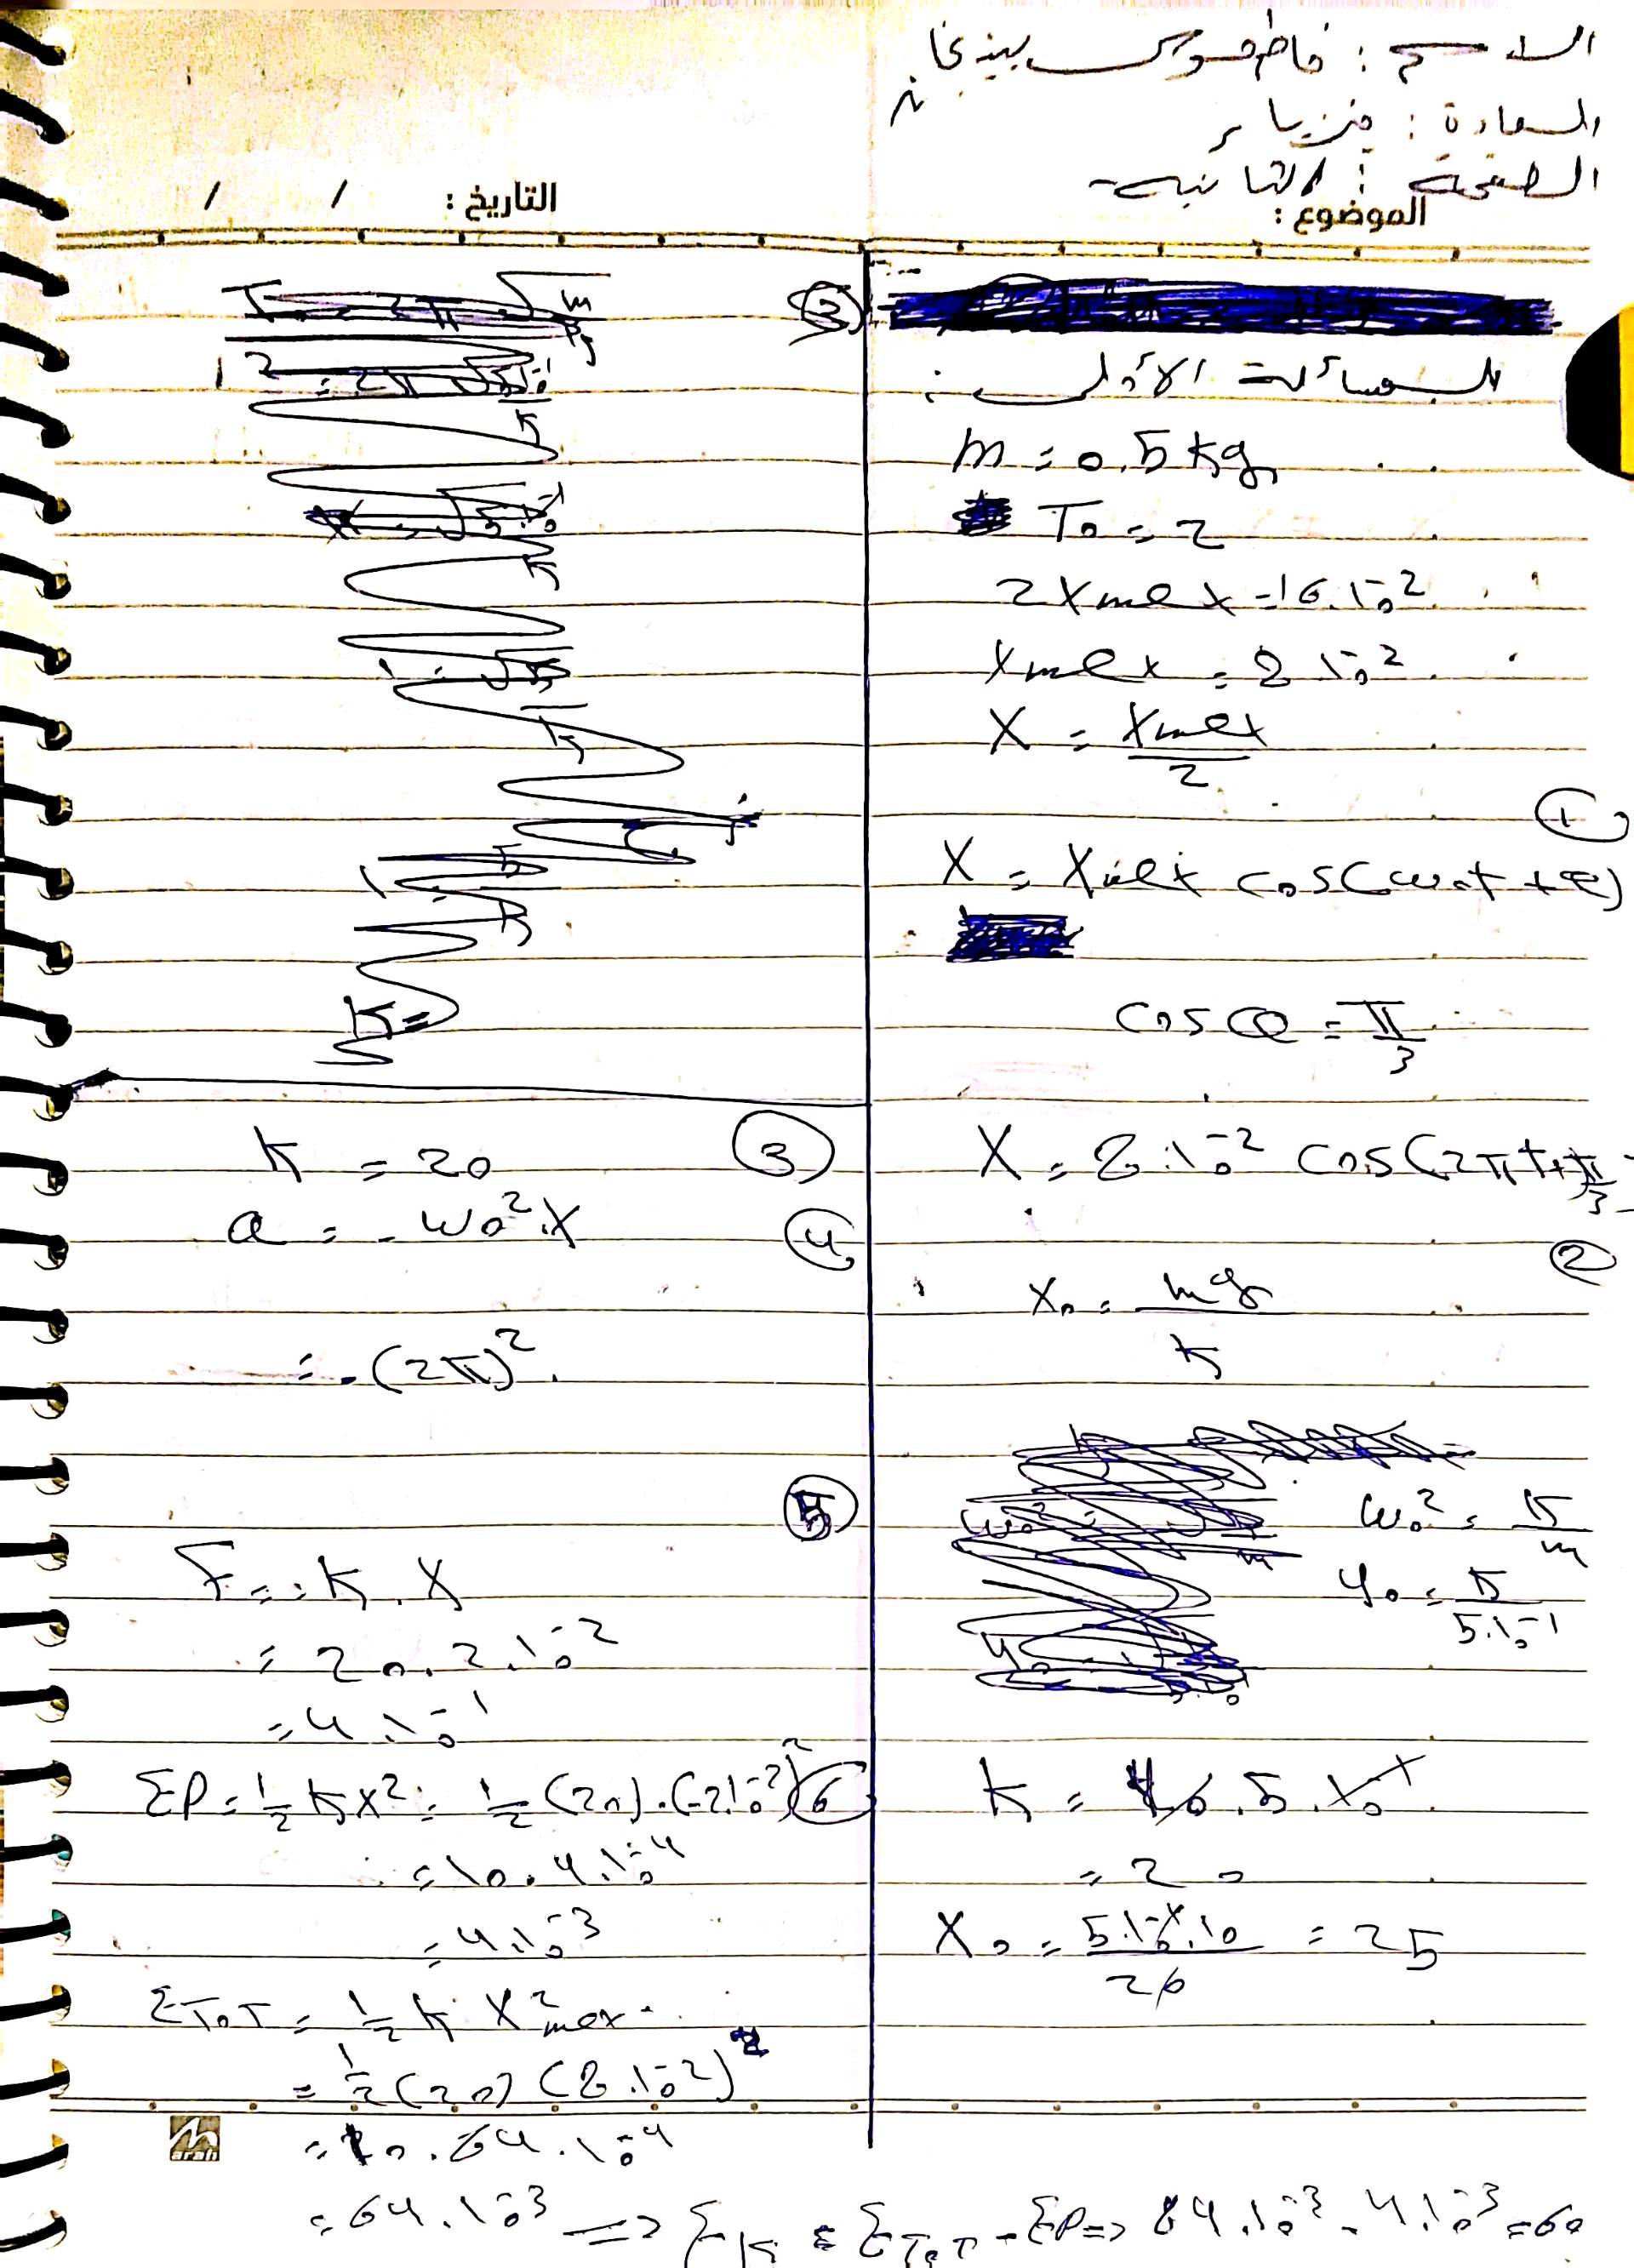 الاسم : فاطمة
المادة : فيزياء
الصفحة : الثانية
الموضوع :
التاريخ : / /
المسألة الأولى :
m = 0.5 kg
T₀ = 2
2Xmax = 16.10⁻²
Xmax = 8 10⁻²
X = Xmax / 2
①
X = Xmax cos(ω₀t + φ)
cos φ = π/3
X = 8.10⁻² cos(2πt + π/3
②
X₀ = mg / k
ω₀² = k / m
40 = k / 5.10⁻¹
k = 40.5.10⁻¹
= 20
X₀ = 5.10⁻¹.10 / 20 = 25
③
k = 20 ③
a = - ω₀².X ④
= - (2π)².
⑤
F = - k . X
= 20.2.10⁻²
= 4.10⁻¹
EP = 1/2 kx² = 1/2 (20).(-2.10⁻²)² ⑥
= 10.4.10⁻⁴
= 4.10⁻³
ETOT = 1/2 k X²max
= 1/2 (20) (8.10⁻²)²
= 10.64.10⁻⁴
= 64.10⁻³ => EK = ETOT - EP => 64.10⁻³ - 4.10⁻³ = 60
arah